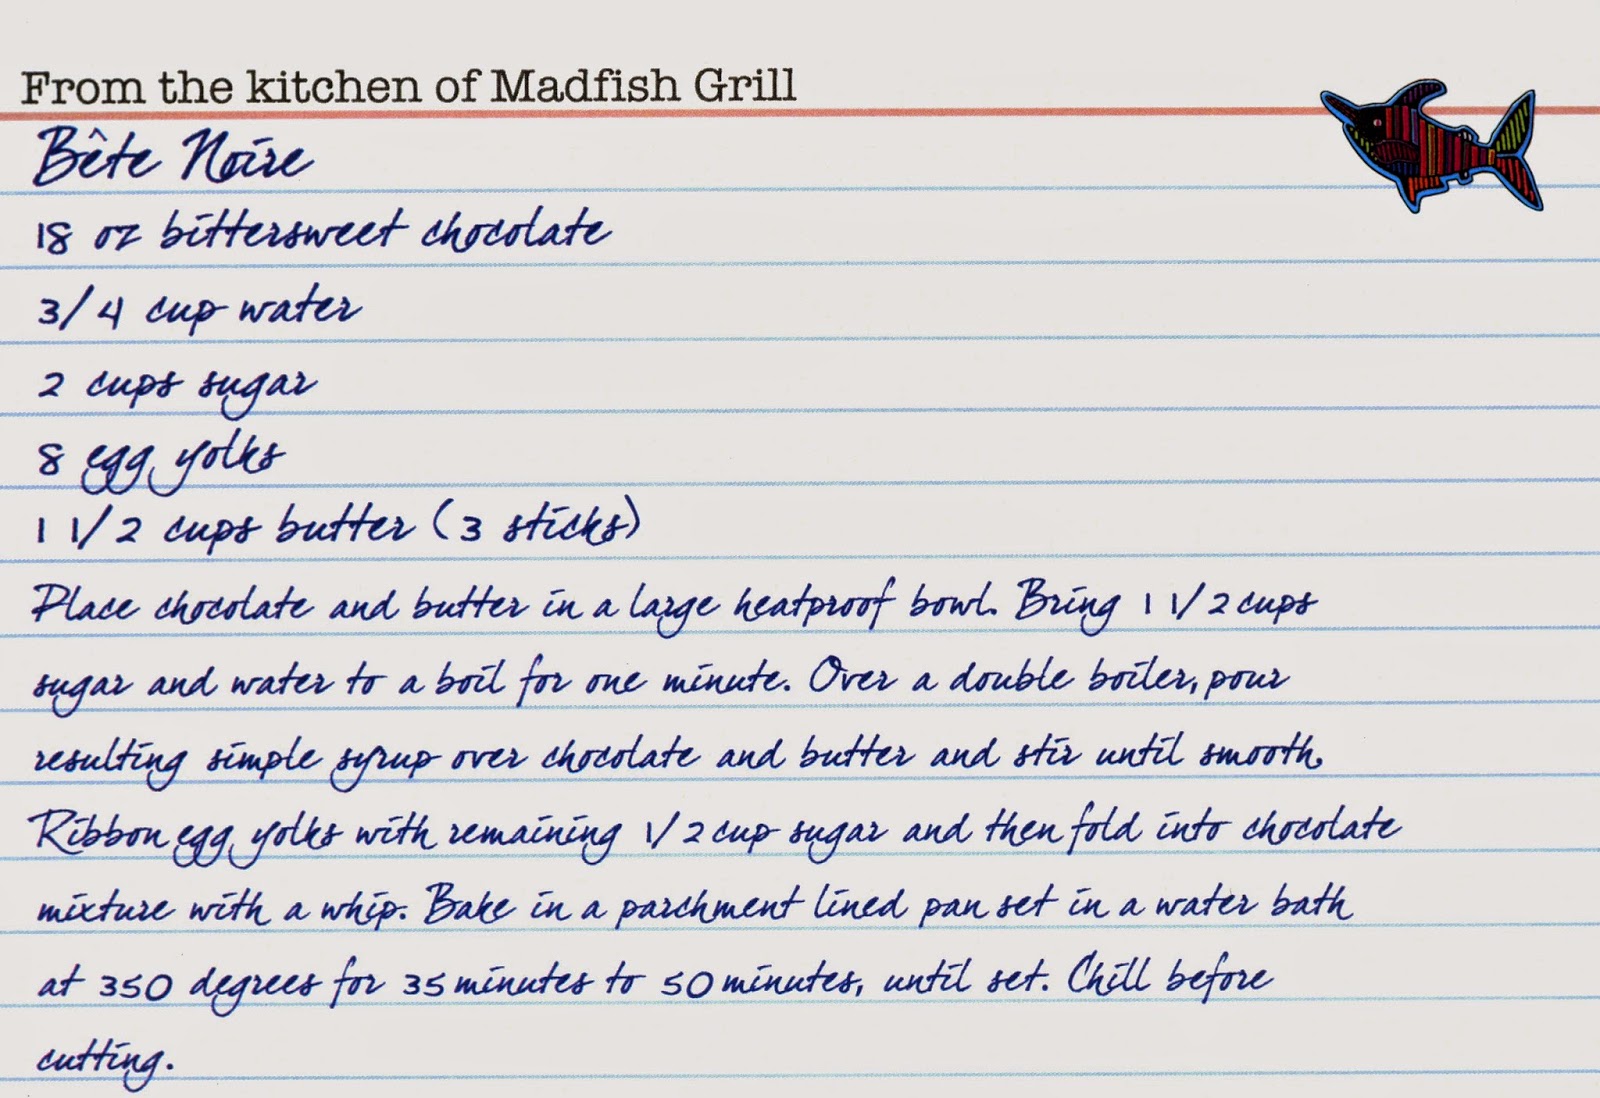 From the kitchen of Madfish Grill
Bête Noire
18 oz bittersweet chocolate
3/4 cup water
2 cups sugar
8 egg yolks
1 1/2 cups butter (3 sticks)
Place chocolate and butter in a large heatproof bowl. Bring 1 1/2 cups
sugar and water to a boil for one minute. Over a double boiler, pour
resulting simple syrup over chocolate and butter and stir until smooth.
Ribbon egg yolks with remaining 1/2 cup sugar and then fold into chocolate
mixture with a whip. Bake in a parchment lined pan set in a water bath
at 350 degrees for 35 minutes to 50 minutes, until set. Chill before
cutting.